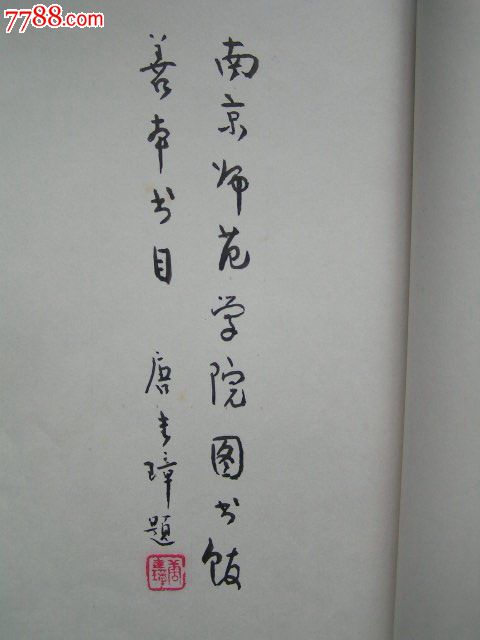 7788.com
南京师范学院图书馆
善本书目 唐圭璋题